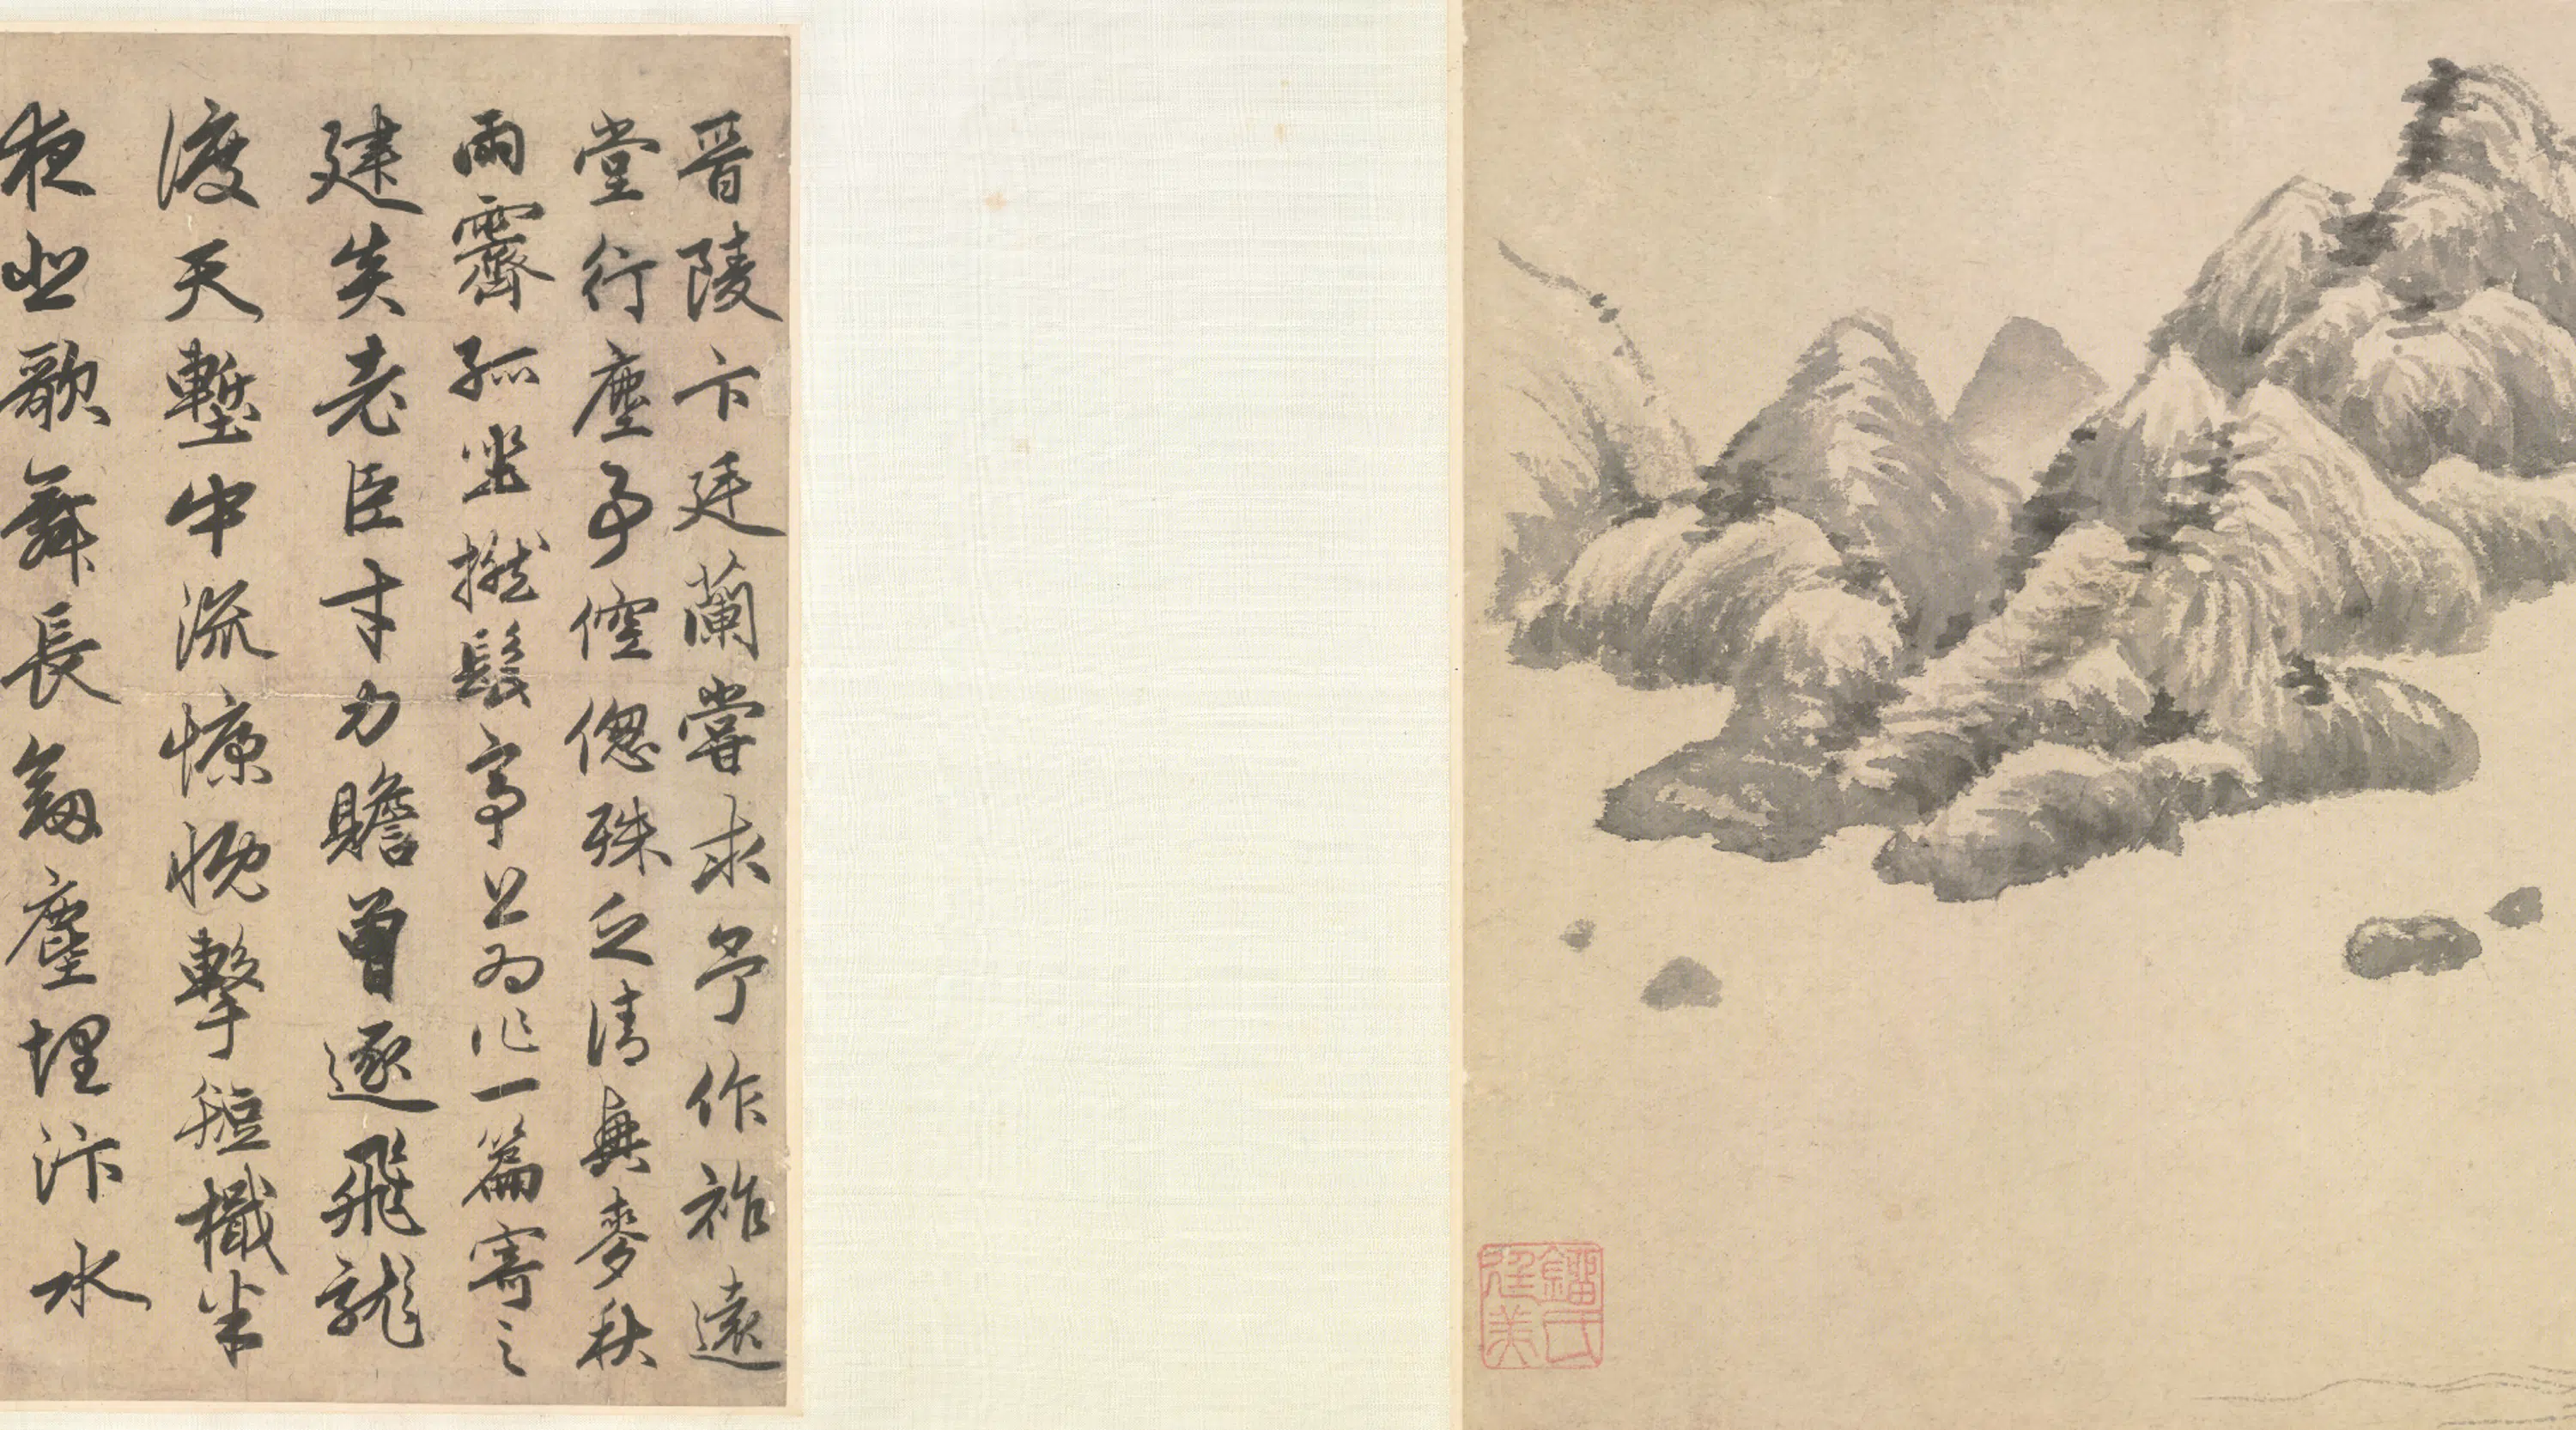 鎦氏廷美
晉陵卞廷蘭嘗求予作祚遠
堂行塵予倥偬殊乏清興麥秋
雨霽孤坐撚髭亭上為作一篇寄之
建炎老臣才力贍曾逐飛龍
渡天塹中流慷慨擊短檝半
夜悲歌舞長劍塵埋汴水